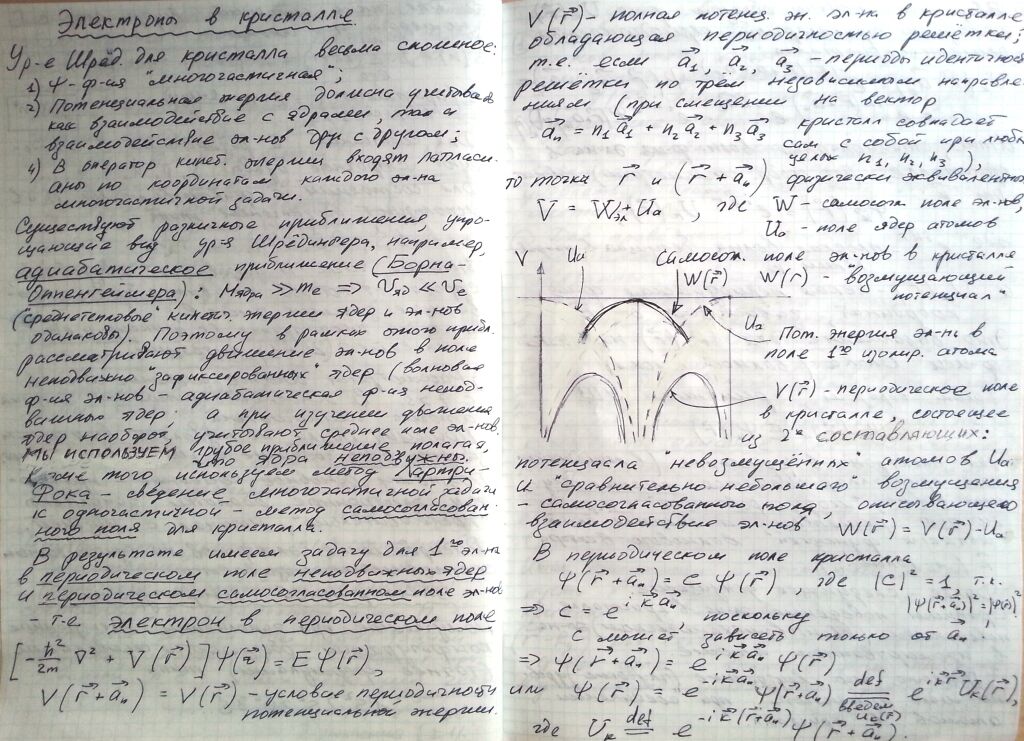 Электроны в кристалле
Ур-е Шрёд. для кристалла весьма сложное:
1) Ψ-ф-ия "многочастичная";
2) Потенциальная энергия должна учитывать
как взаимодействие с ядрами, так и
взаимодействие эл-нов друг с другом;
4) В оператор кинет. энергии входят лапласи-
аны по координатам каждого эл-на
многочастичной задачи.
Существуют различные приближения, упро-
щающие вид ур-я Шрёдингера, например,
адиабатическое приближение (Борна-
Оппенгеймера): Mядра ≫ me ⇒ Vяд ≪ Ve
("среднетепловые" кинет. энергии ядер и эл-нов
одинаковы). Поэтому в рамках этого прибл.
рассматривают движение эл-нов в поле
неподвижно "зафиксированных" ядер (волновая
ф-ия эл-нов - адиабатическая ф-ия непод-
вижных ядер; а при изучении движения
ядер наоборот, учитывают среднее поле эл-нов.
МЫ ИСПОЛЬЗУЕМ грубое приближение, полагая,
что ядра неподвижны.
Кроме того используем метод Хартри-
Фока - сведение многочастичной задачи
к одночастичной - метод самосогласован-
ного поля для кристалла.
В результате имеем задачу для 1го эл-на
в периодическом поле неподвижных ядер
и периодическом самосогласованном поле эл-нов
- т.е. электрон в периодическом поле
[-ħ²/2m ∇² + V(r⃗)]Ψ(r⃗) = EΨ(r⃗),
V(r⃗+a⃗n) = V(r⃗) - условие периодичности
потенциальной энергии.
V(r⃗) - полная потенц. эн. эл-на в кристалле
обладающая периодичностью решётки;
т.е. если a⃗1, a⃗2, a⃗3 - периоды идентичност
решётки по трём независимым направле-
ниям (при смещении на вектор
a⃗n = n1a⃗1 + n2a⃗2 + n3a⃗3 кристалл совпадает
сам с собой при любых
целых n1, n2, n3),
то точки r⃗ и (r⃗+a⃗n) физически эквивалентны
V = Wэл + Ua, где W - самосогл. поле эл-нов,
Ua - поле ядер атомов
V Ua Самосогл. поле эл-нов в кристалле
W(r⃗) W(r) - "возмущающий
потенциал"
Ua Пот. энергия эл-на в
поле 1го изолир. атома
V(r⃗) - периодическое поле
в кристалле, состоящее
из 2х составляющих:
потенциала "невозмущённых" атомов Ua
и "сравнительно небольшого" возмущения
- самосогласованного поля, описывающего
взаимодействие эл-нов W(r⃗) = V(r⃗) - Ua
В периодическом поле кристалла
Ψ(r⃗+a⃗n) = C Ψ(r⃗), где |C|² = 1, т.к.
|Ψ(r⃗+a⃗n)|² = |Ψ(r⃗)|²
⇒ C = e^{i k⃗a⃗n}, поскольку
C может зависеть только от a⃗n;
⇒ Ψ(r⃗+a⃗n) = e^{i k⃗a⃗n} Ψ(r⃗)
или Ψ(r⃗) = e^{-i k⃗a⃗n} Ψ(r⃗+a⃗n) def= e^{i k⃗r⃗} Uk(r⃗),
введем
Uk(r⃗)
где Uk def= e^{-i k⃗(r⃗+a⃗n)} Ψ(r⃗+a⃗n).